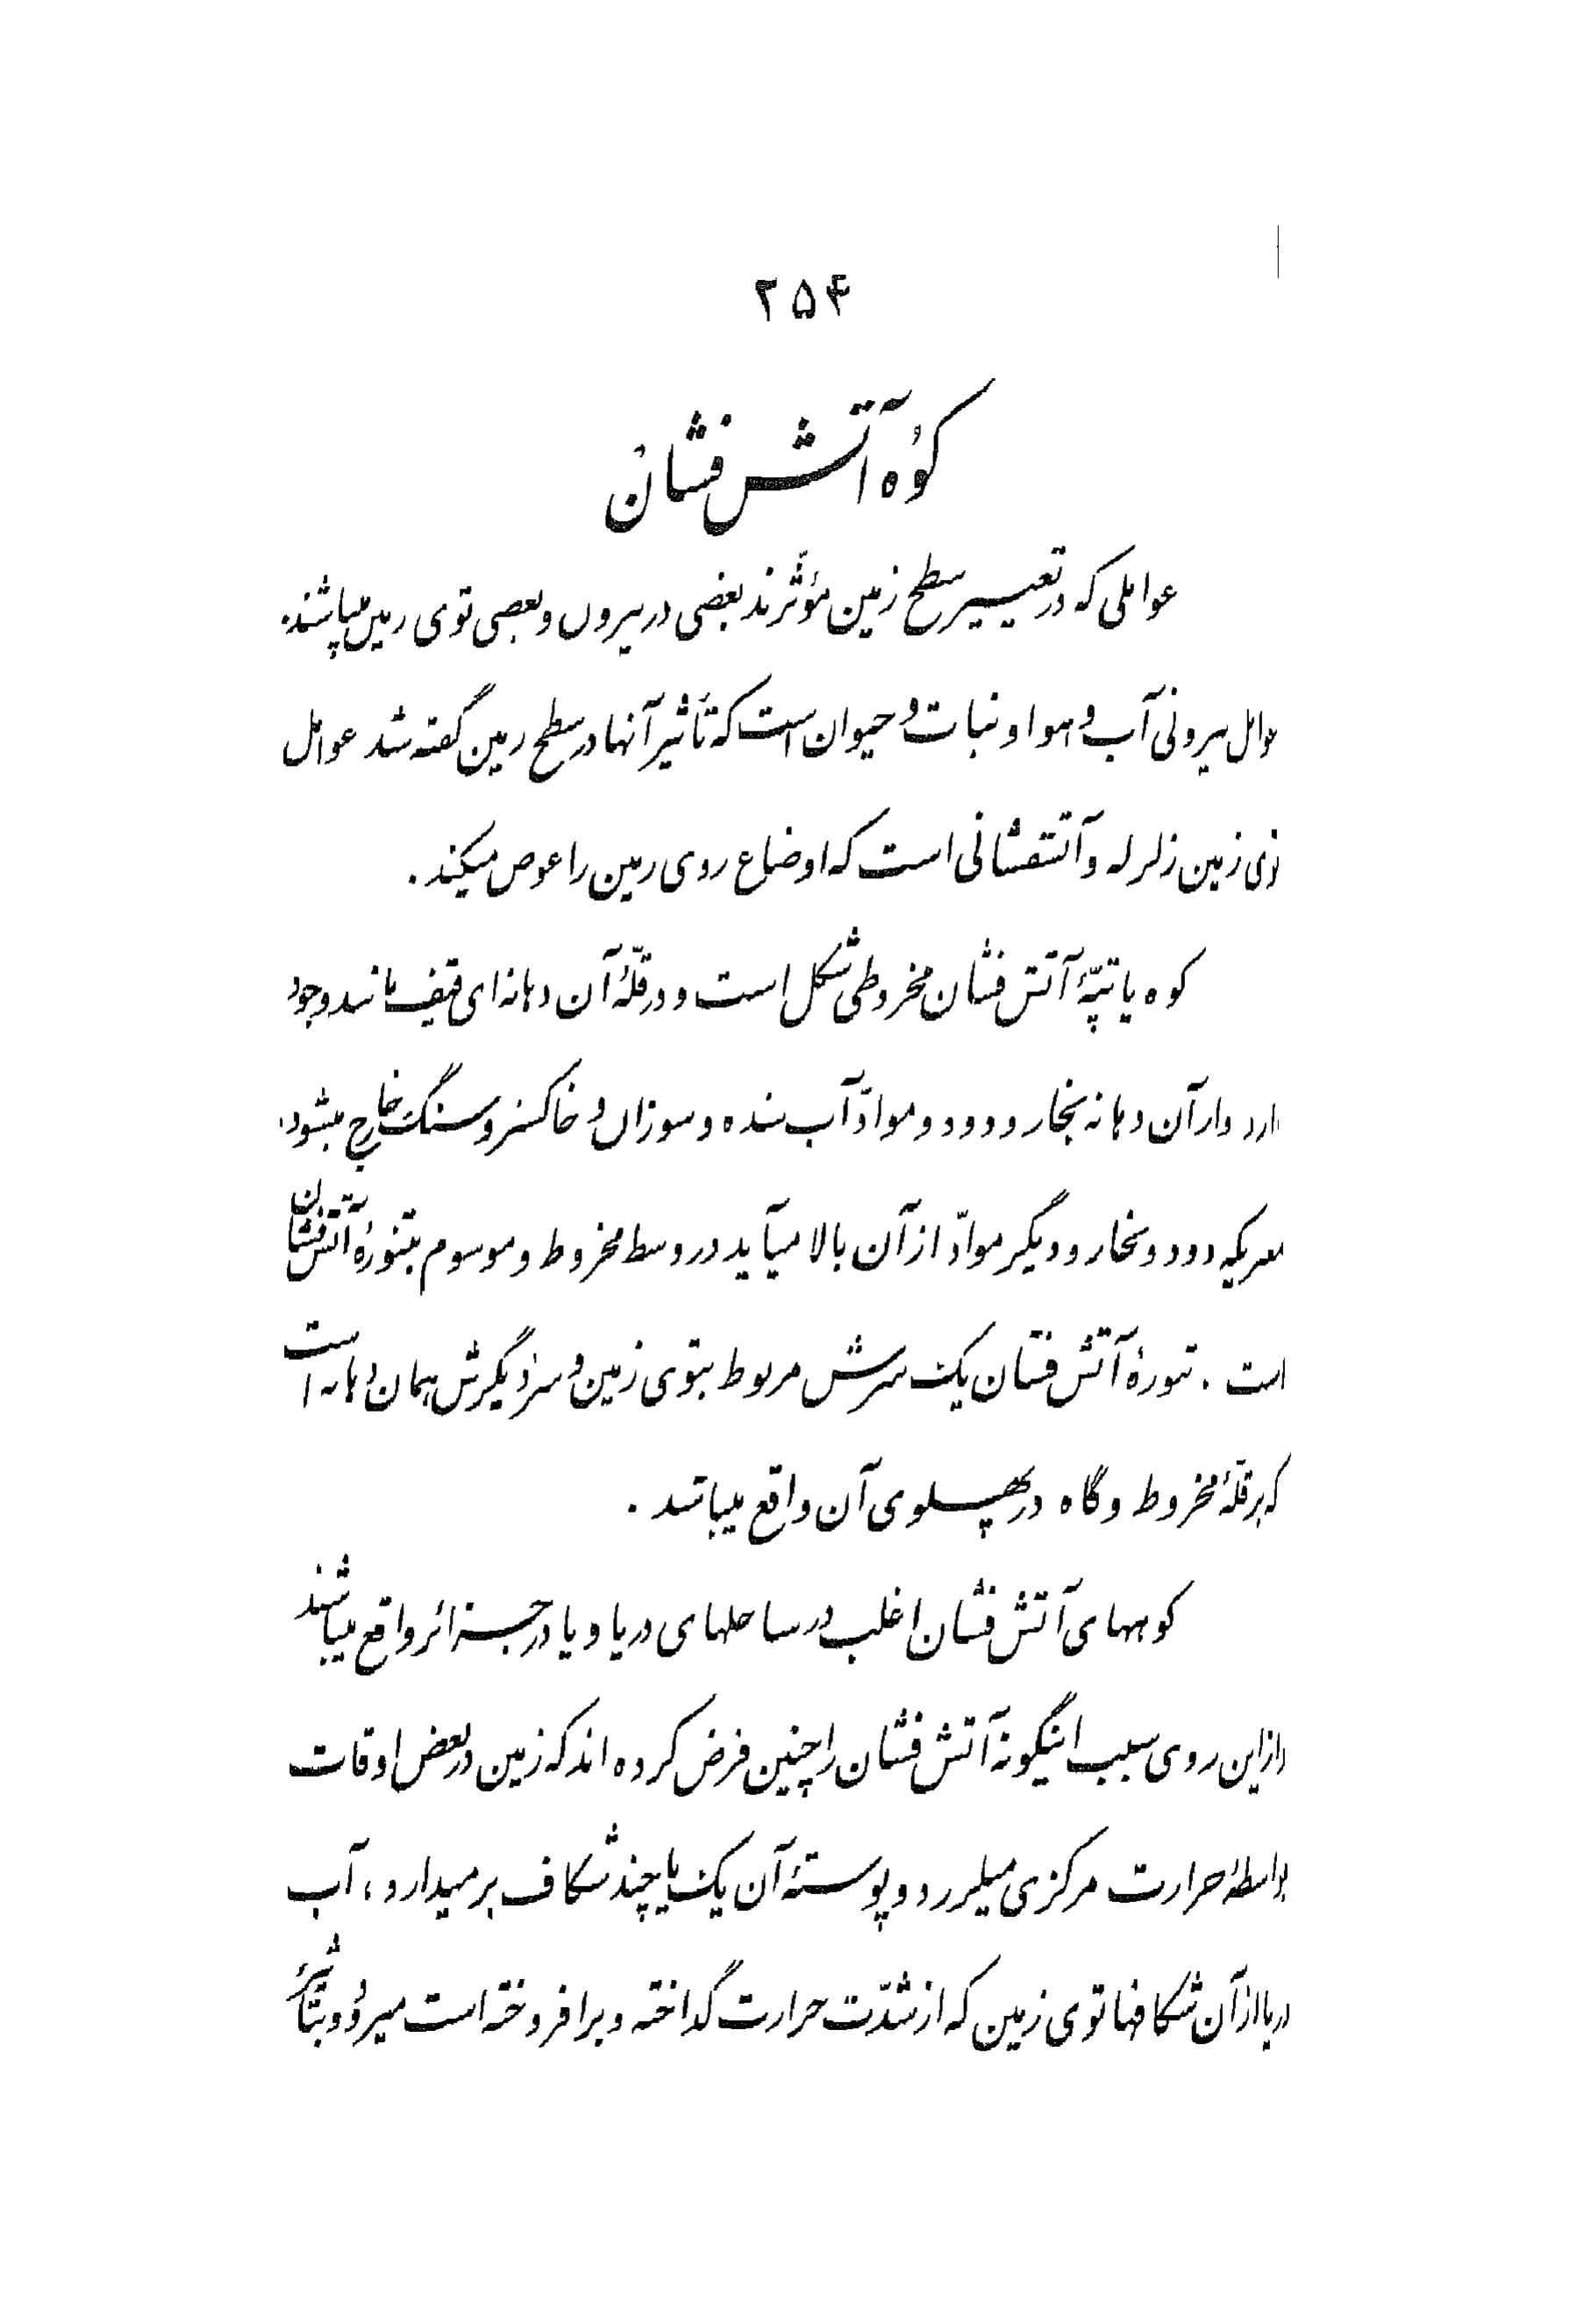 ۲۵۴
کوه آتش فشان
عواملی که در تغییر سطح زمین مؤثّرند بعضی در بیرون و بعضی توی زمین میباشند.
عوامل بیرونی آب و هوا و نبات و حیوان است که تأثیر آنها در سطح زمین گفته شد عوامل
توی زمین زلزله و آتشفشانی است که اوضاع روی زمین را عوض میکند.
کوه یا تپّهٔ آتش فشان مخروطی شکل است و در قلّهٔ آن دهانه‌ای قیف مانند وجود
دارد و از آن دهانه بخار و دود و موادّ آب شده و سوزان و خاکستر و سنگ خارج میشود.
معبریکه دود و بخار و دیگر موادّ از آن بالا میآید در وسط مخروط و موسوم بتنورهٔ آتش فشان
است. تنورهٔ آتش فشان یک سرش مربوط بتوی زمین و سر دیگرش همان دهانه است
که بر قلّهٔ مخروط و گاه در پهلوی آن واقع میباشد.
کوههای آتش فشان اغلب در ساحلهای دریا و یا در جزائر واقع میباشند
و از این روی سبب اینگونه آتش فشان را چنین فرض کرده‌اند که زمین در بعض اوقات
بواسطهٔ حرارت مرکزی میلرزد و پوستهٔ آن یک یا چند شکاف برمیدارد، آب
دریا از آن شکافها توی زمین که از شدّت حرارت گداخته و برافروخته است میرود و بتأثیر